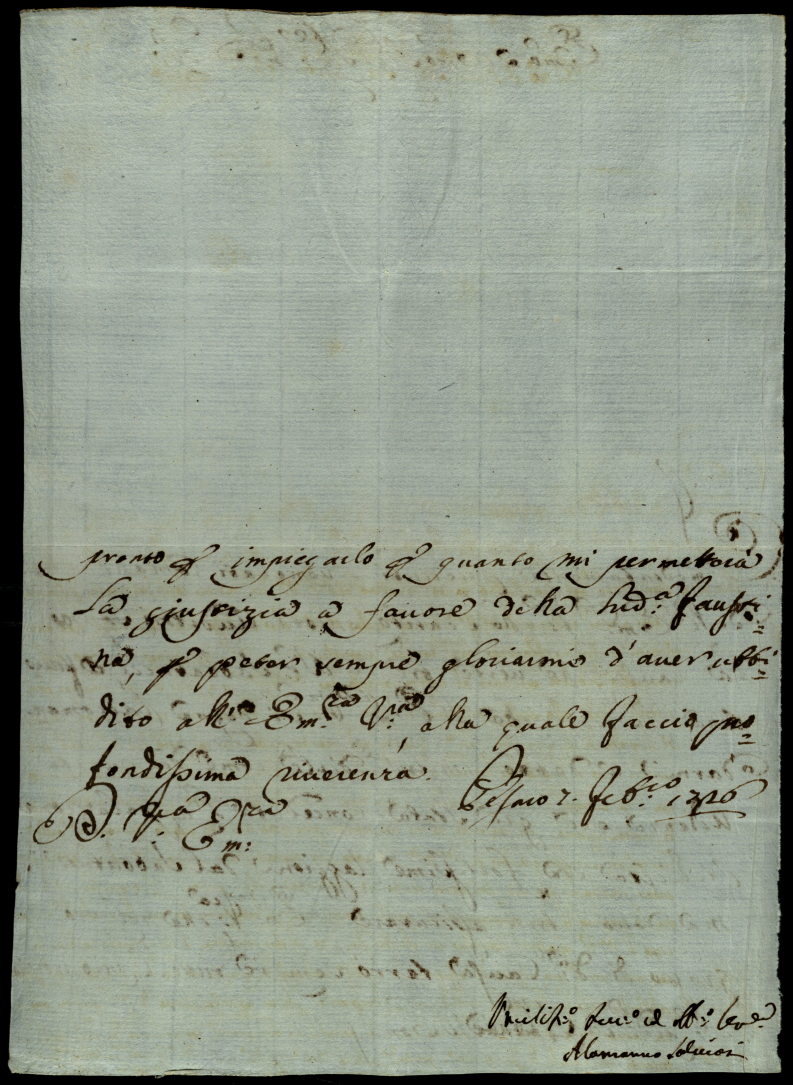 pronto p impiegarlo p quanto mi permetterà
la giustizia a favore della sud.ª Fausti=
na, p poter sempre gloriarmi d'aver ubbi=
dito all' Em.ᶻᵃ V.ʳᵃ, alla quale faccio pro=
fondissima riverenza. Pesaro 7. Feb.ʳᵒ 1726
D. V.ʳᵃ Em.ᶻᵃ
Umiliss.º Ser.º ed Obb.º
Alamanno Salviati